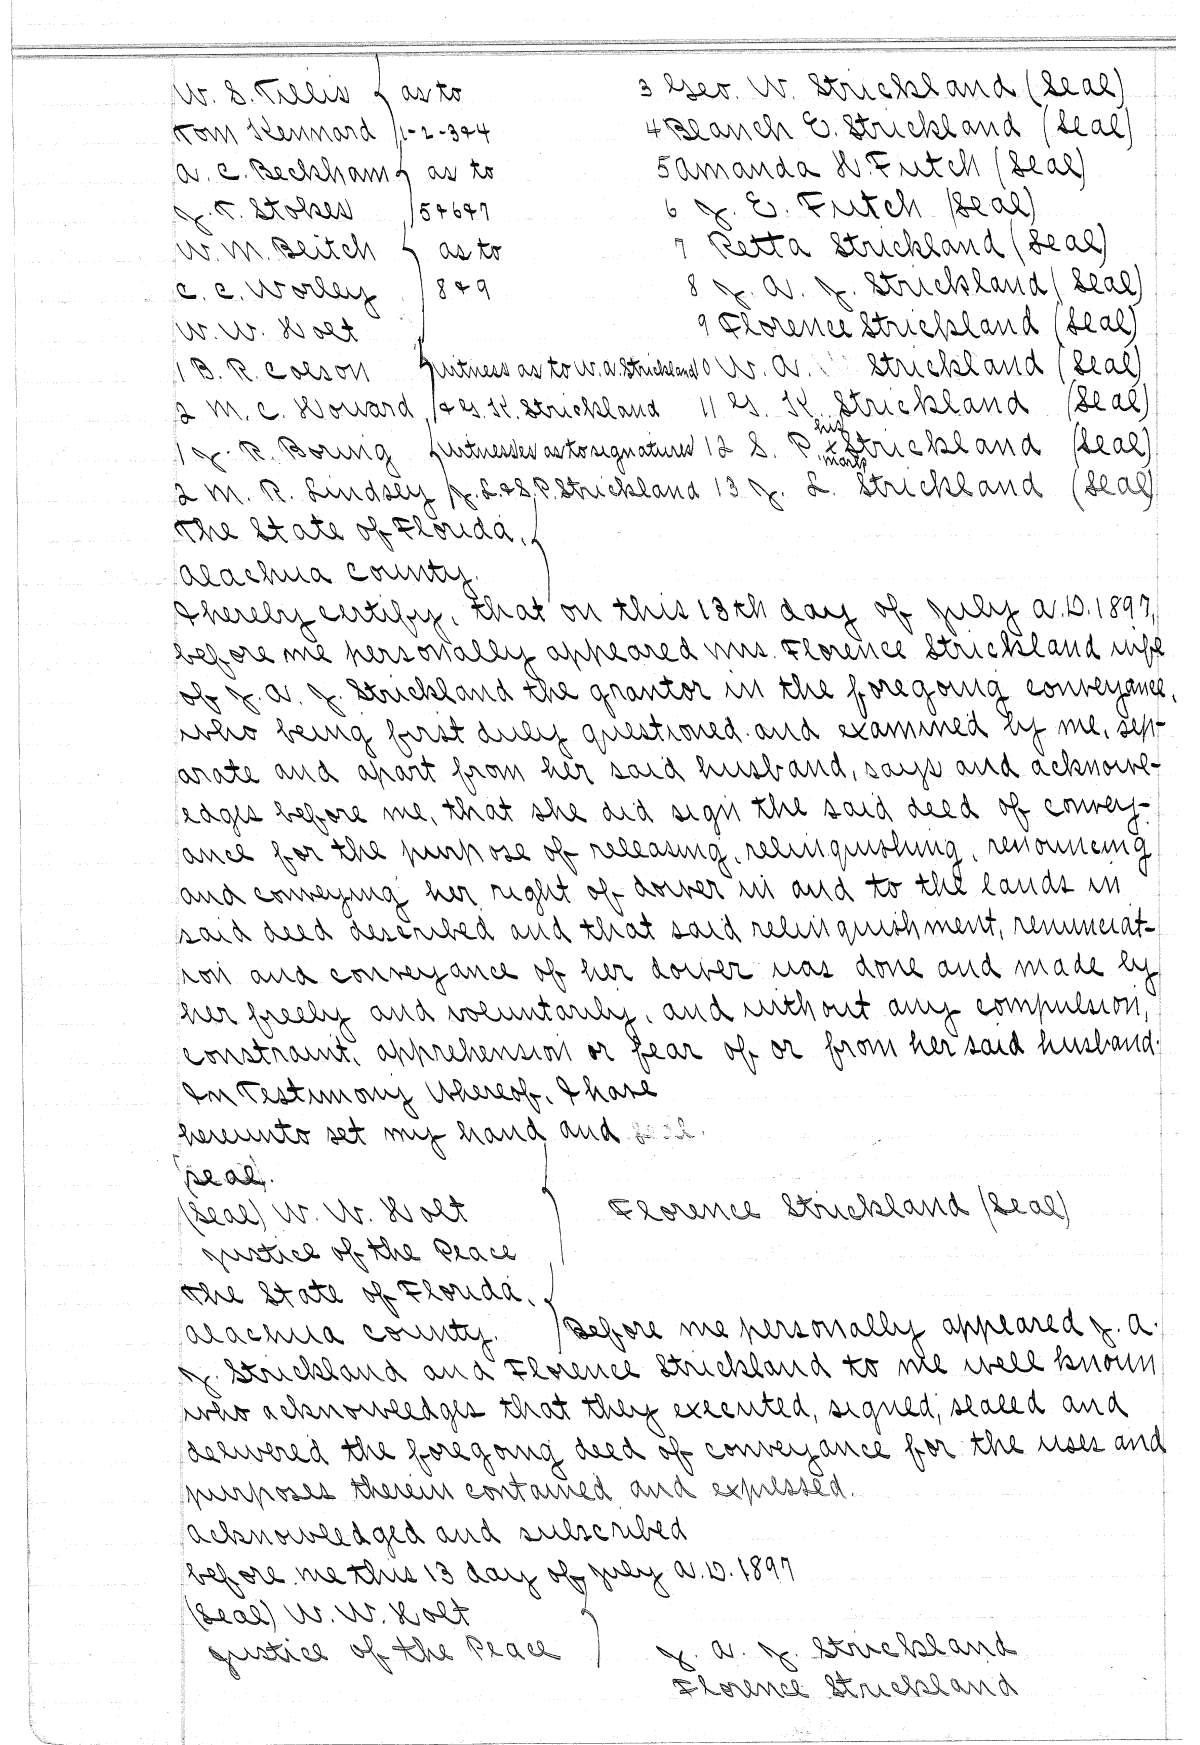 W. S. Tillis } as to 3 Geo. W. Strickland (Seal)
Tom Kennard 1-2-3&4 4 Blanch E. Strickland (Seal)
A. C. Beckham } as to 5 Amanda H. Futch (Seal)
J. T. Stokes 5&6&7 6 J. E. Futch (Seal)
W. M. Blitch } as to 7 Retta Strickland (Seal)
C. C. Worley 8&9 8 J. A. J. Strickland (Seal)
W. W. Holt 9 Florence Strickland (Seal)
1 B. R. Colson } witness as to W. A. Strickland 10 W. A. Strickland (Seal)
2 M. C. Howard & G. K. Strickland 11 G. K. Strickland (Seal)
1 J. R. Boring } witnesses as to signatures 12 S. P. his x mark Strickland (Seal)
2 M. R. Lindsey J. L. & S. P. Strickland 13 J. L. Strickland (Seal)
The State of Florida, }
Alachua County.
I hereby certify, that on this 13th day of July A.D. 1897,
before me personally appeared Mrs. Florence Strickland wife
of J. A. J. Strickland the grantor in the foregoing conveyance,
who being first duly questioned and examined by me, sep-
arate and apart from her said husband, says and acknowl-
edges before me, that she did sign the said deed of convey-
ance for the purpose of releasing, relinquishing, renouncing
and conveying her right of dower in and to the lands in
said deed described and that said relinquishment, renunciat-
ion and conveyance of her dower was done and made by
her freely and voluntarily, and without any compulsion,
constraint, apprehension or fear of or from her said husband.
In Testimony Whereof, I have
hereunto set my hand and seal.
seal.
(Seal) W. W. Holt } Florence Strickland (Seal)
Justice of the Peace
The State of Florida, }
Alachua County. Before me personally appeared J. A.
J. Strickland and Florence Strickland to me well known
who acknowledges that they executed, signed, sealed and
delivered the foregoing deed of conveyance for the uses and
purposes therein contained and expressed.
Acknowledged and subscribed
before me this 13 day of July A.D. 1897
(Seal) W. W. Holt }
Justice of the Peace J. A. J. Strickland
Florence Strickland